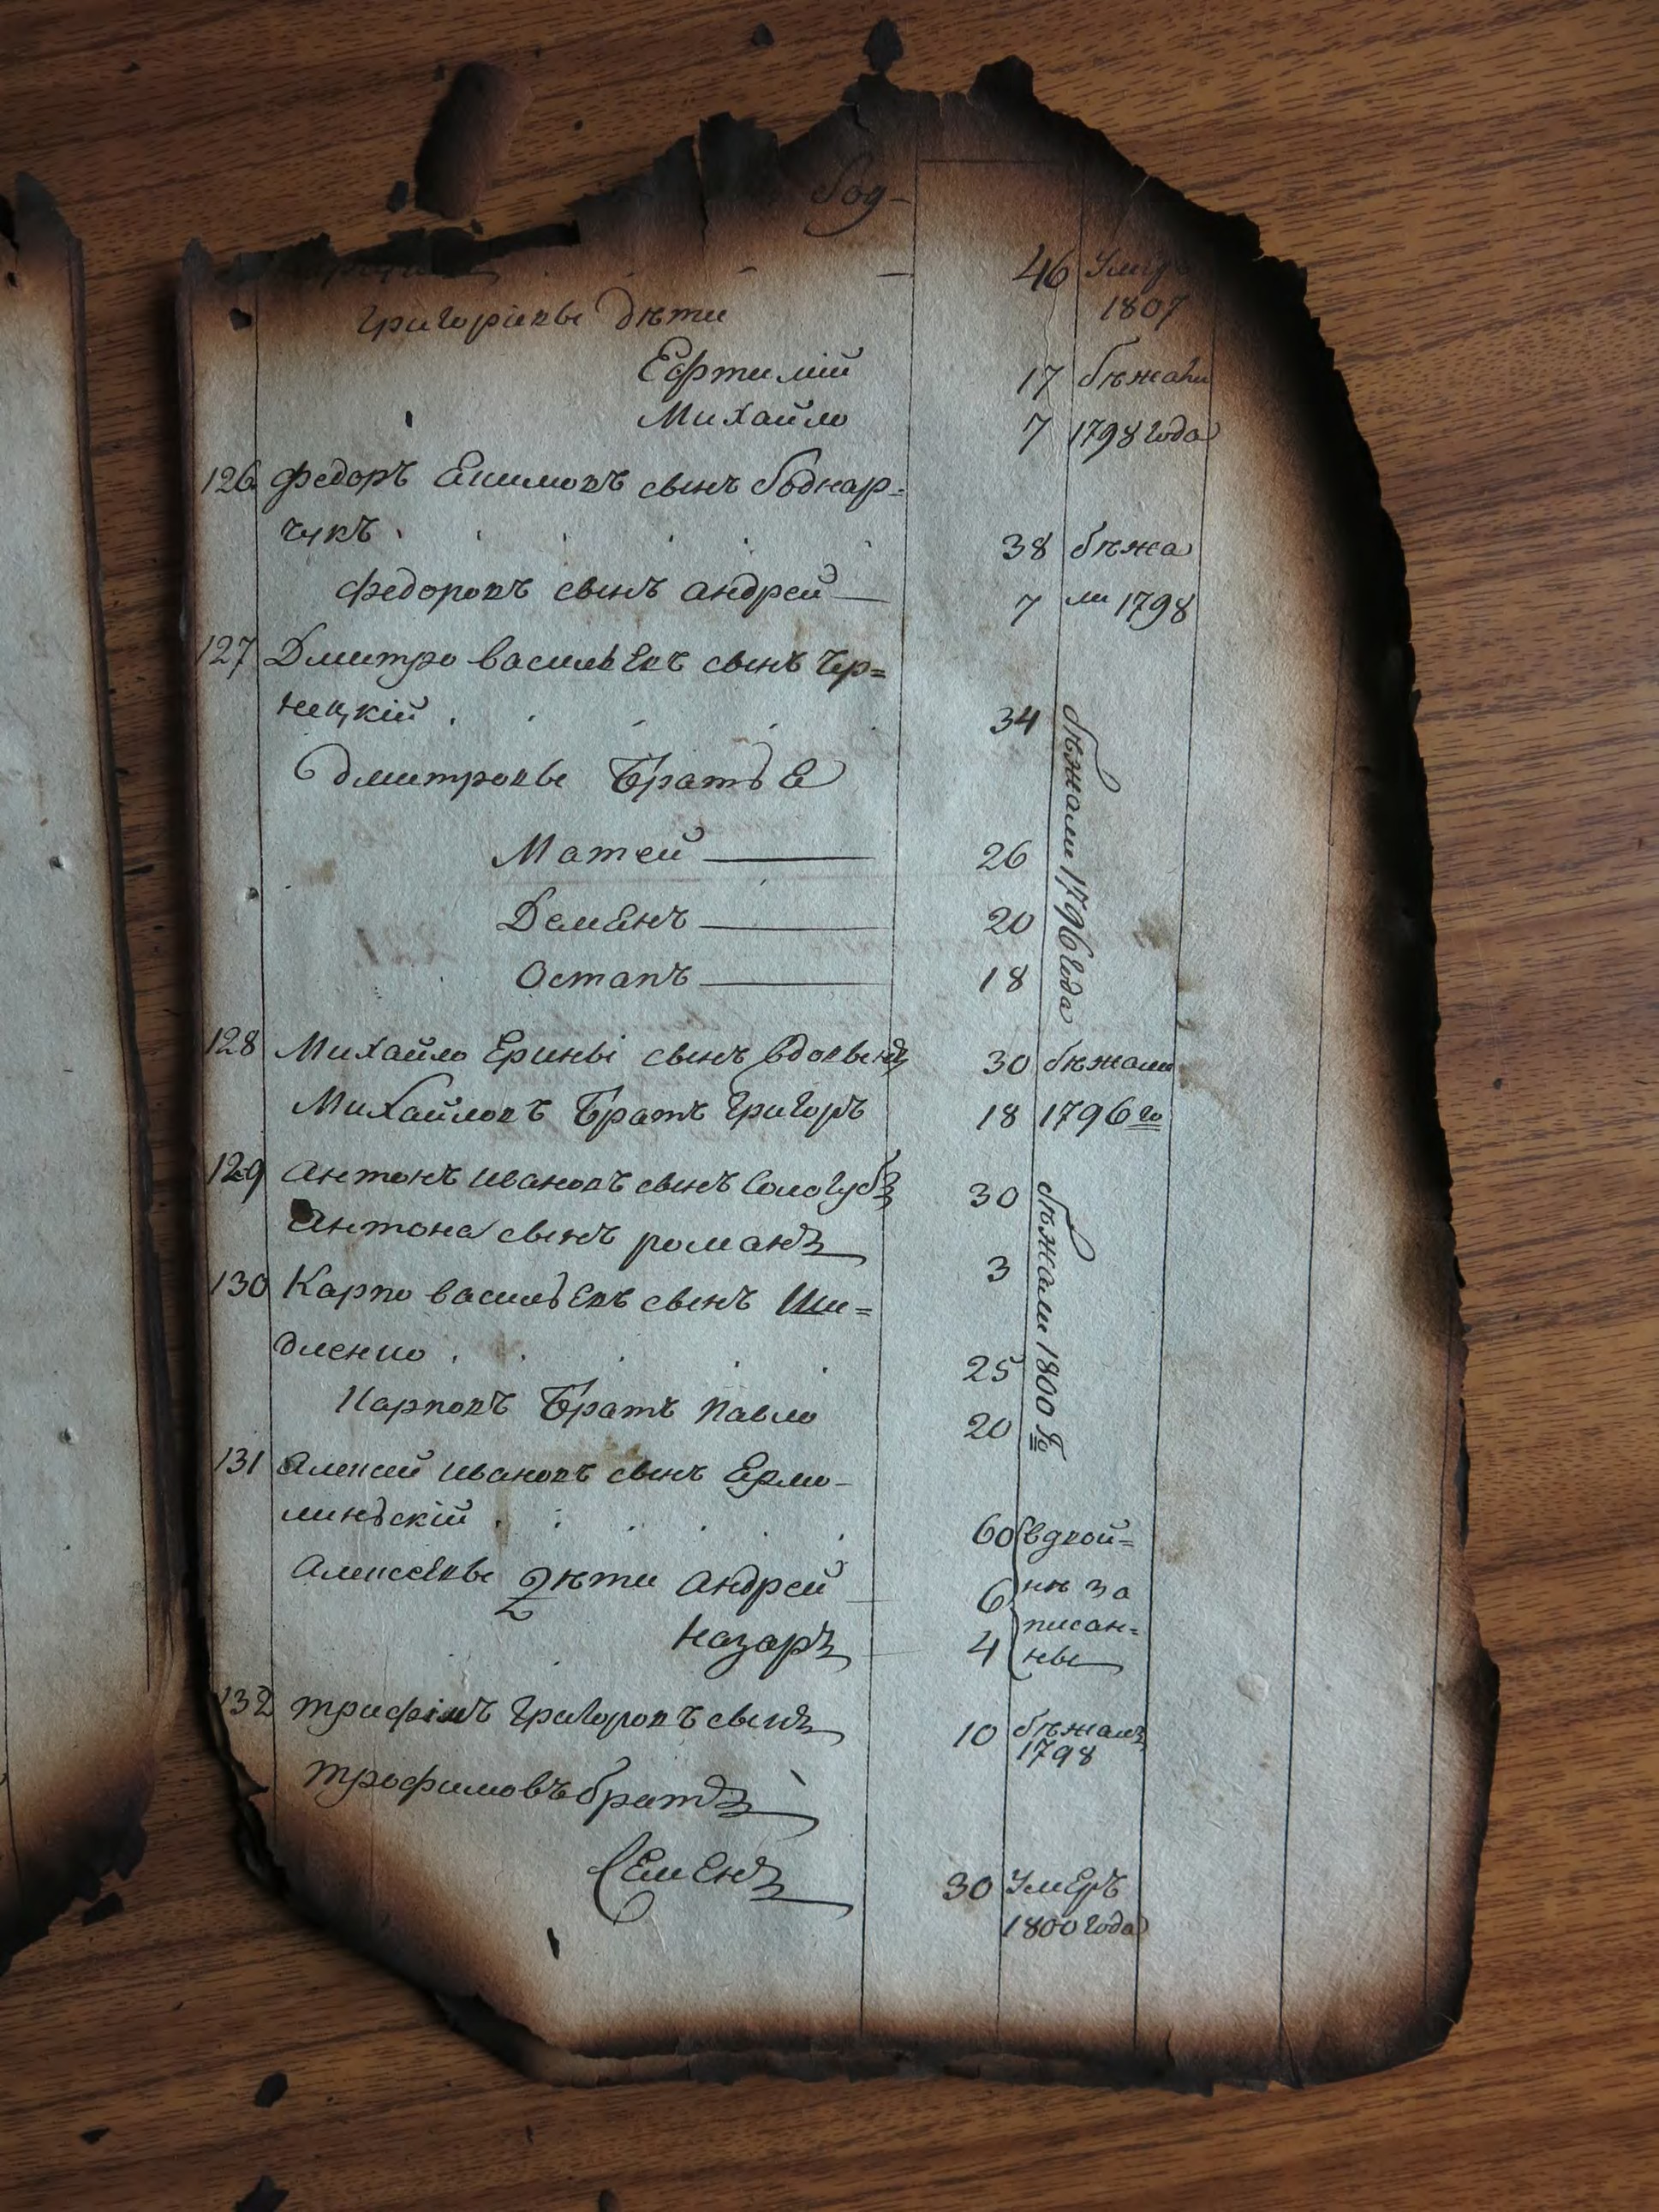 бод-
46 Умеръ
1807
Григоріевы дѣти
Ефтимій 17 бѣжали
Михайло 7 1798 года
126 Федоръ Екимовъ сынъ боднар=
чукъ 38 бѣжа
Федоровъ сынъ андрей 7 ли 1798
127 Дмитро васильевъ сынъ чер=
нецкій 34
бѣжали 1796 года
дмитровы братья
Матей 26
Деменъ 20
Остапъ 18
128 Михайло Ерины сынъ вдовы 30 бѣжали
Михайловъ братъ григоръ 18 1796 го
129 антонъ ивановъ сынъ Сологубъ 30
бѣжали 1800 го
антона сынъ романъ 3
130 Карпо васильевъ сынъ Ши=
дленко 25
Карповъ братъ павло 20
131 алексей ивановъ сынъ Ермо-
линьскій 60 вдвой=
алексеевы 2 дѣти андрей 6 нѣ за
писан=
назаръ 4 ны
132 трифімъ григоровъ сынъ 10 бѣжалъ
1798
трофимовъ братъ
Семенъ 30 Умеръ
1800 года